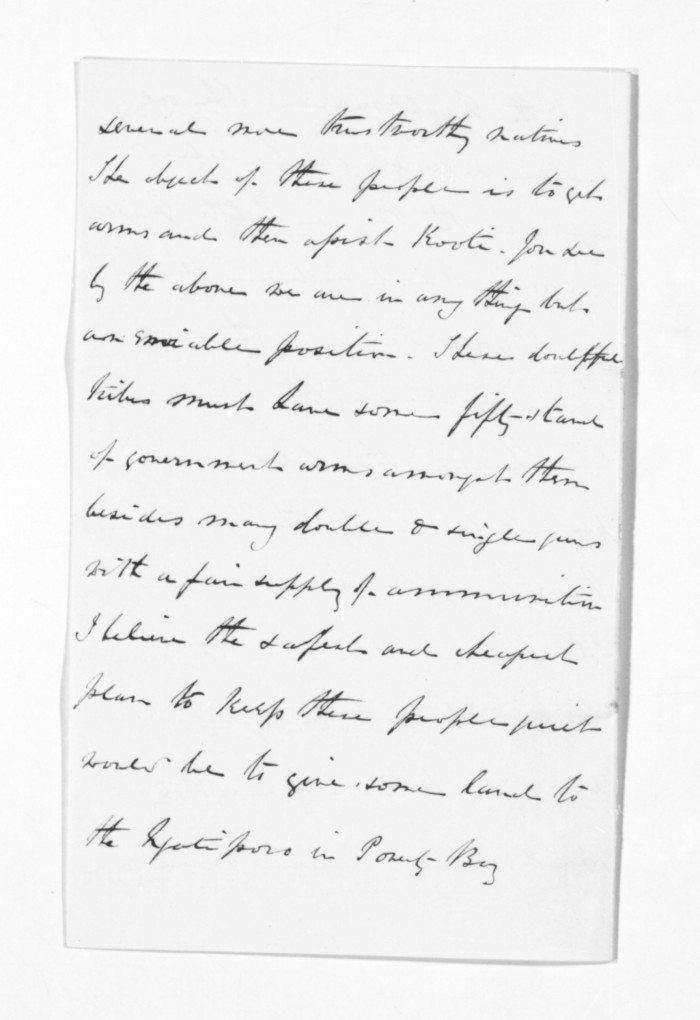 several more trustworthy natives
The object of these people is to get
arms and then assist Kooti. You see
by the above we are in any thing but
an enviable position. These doubtful
tribes must have some fifty stand
of government arms amongst them
besides many double & single guns
with a fair supply of ammunition
I believe the safest and cheapest
plan to keep these people quiet
would be to give some land to
the Ngatiporo in Poverty Bay